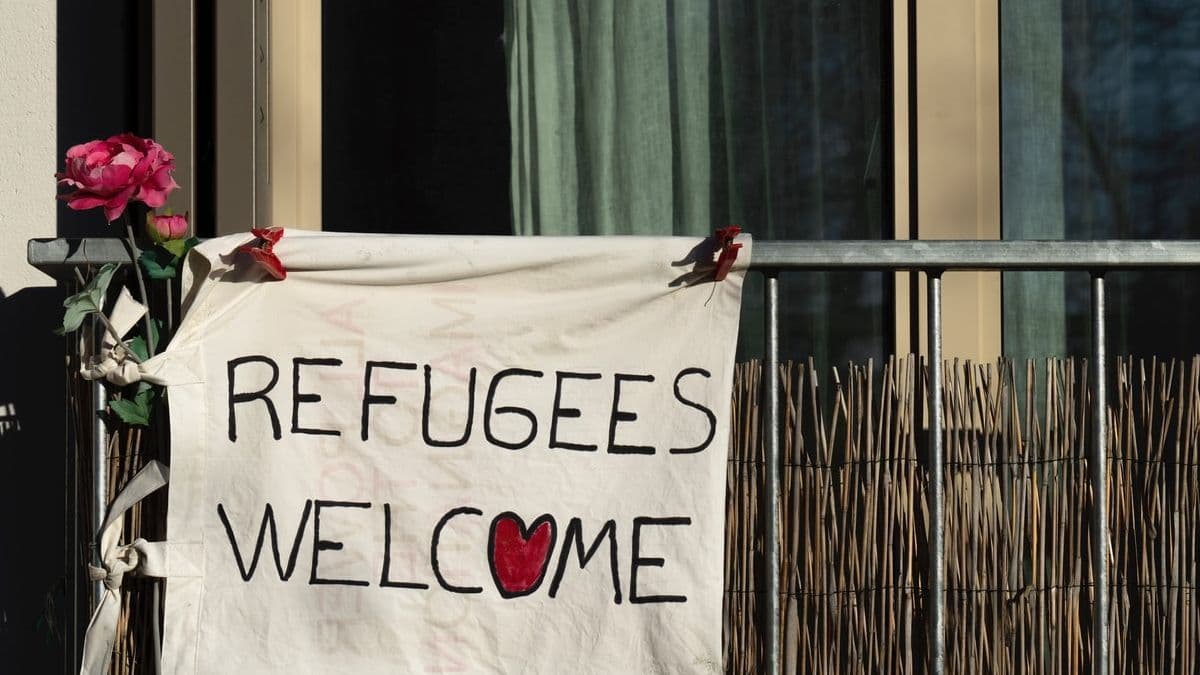 REFUGEES
WELC❤ME